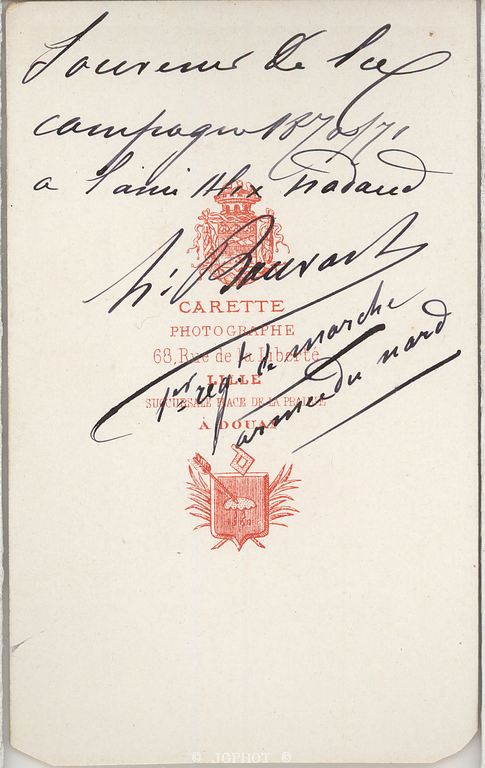 Souvenir de la
campagne 1870/71
a l'ami Alix Nadaud
CARETTE
PHOTOGRAPHE
68, Rue de la Liberté
LILLE
SUCCURSALE PLACE DE LA PRAIRIE
À DOUAI
1er regt de marche
armée du nord
© JGPHOT ©